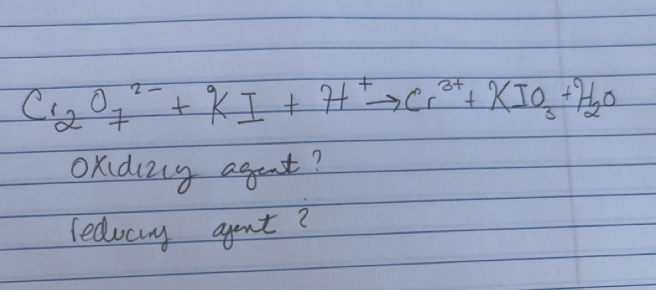 Cr₂O₇²⁻ + KI + H⁺ → Cr³⁺ + KIO₃ + H₂O
oxidiziy agent ?
reducing agent ?